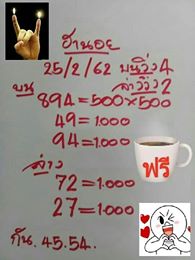 ฮานอย
25/2/62 บนวิ่ง 4
ล่างวิ่ง 2
บน
894=500×500
49=1.000
94=1.000
ล่าง
72=1.000
27=1.000
ฟรี
กัน.45.54..